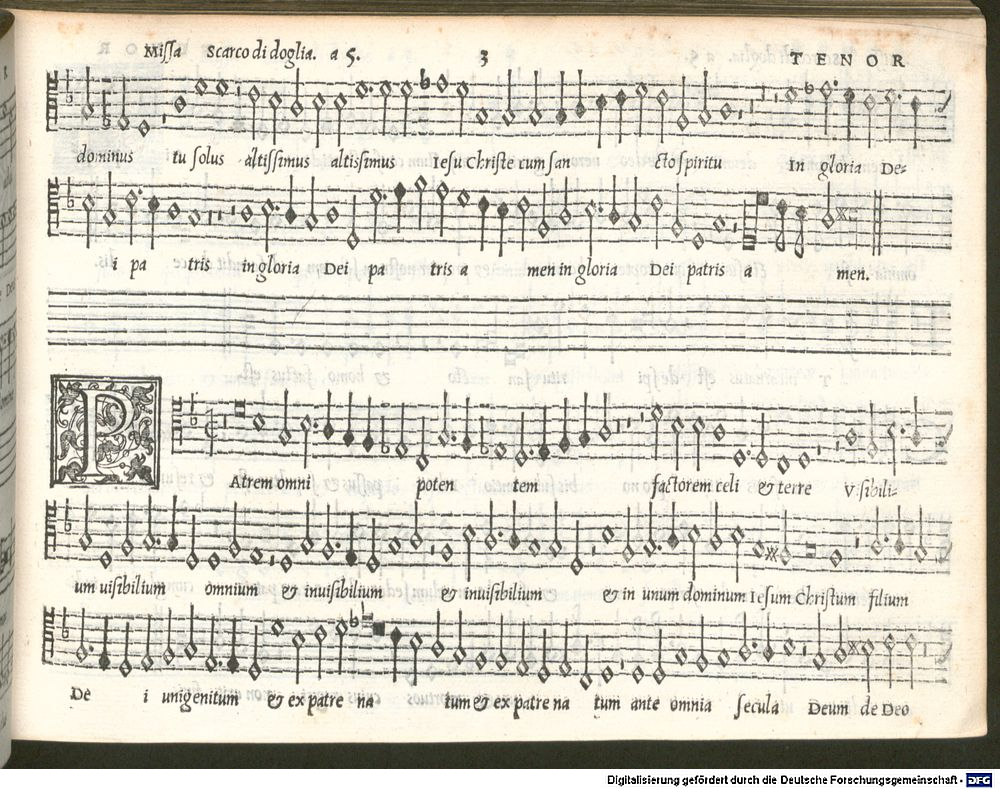 Missa Scarco di doglia. a 5. 3 TENOR
dominus tu solus altissimus altissimus Iesu Christe cum san cto spiritu In gloria De-
i pa tris in gloria Dei pa tris a men in gloria Dei patris a men.
P
Atrem omni poten tem factorem celi & terre Visibili-
um uisibilium omnium & inuisibilium & inuisibilium & in unum dominum Iesum Christum filium
De i unigenitum & ex patre na tum & ex patre na tum ante omnia secula Deum de Deo
Digitalisierung gefördert durch die Deutsche Forschungsgemeinschaft - DFG